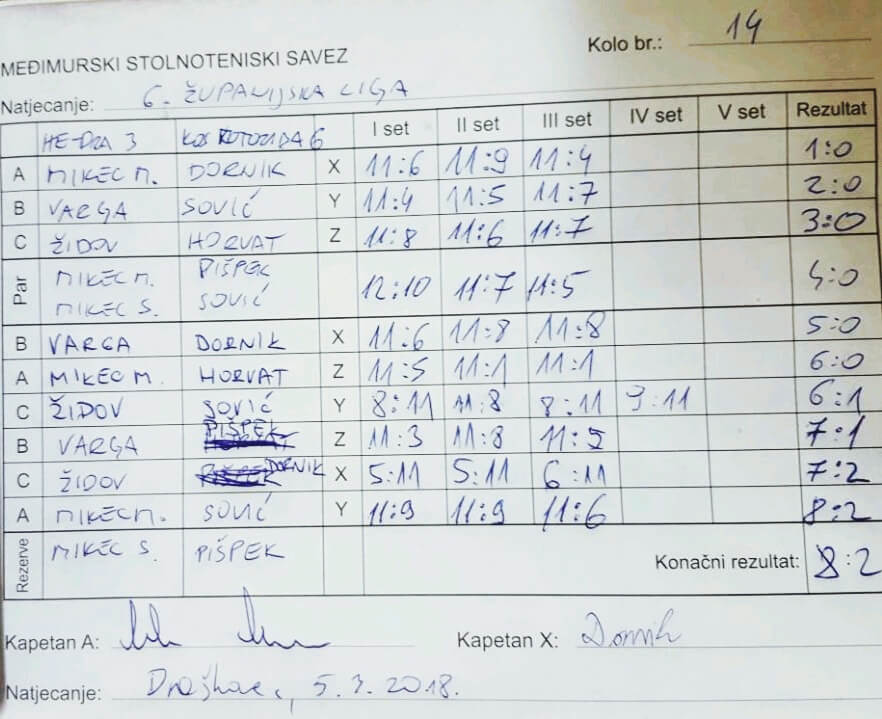 Kolo br.: 14
MEĐIMURSKI STOLNOTENISKI SAVEZ
Natjecanje: 6. ŽUPANIJSKA LIGA
HE-DRA 3 KOTORIBA 6 I set II set III set IV set V set Rezultat
A MIKEC M. DORNIK X 11:6 11:9 11:4 1:0
B VARGA SOVIĆ Y 11:4 11:5 11:7 2:0
C ŽIDOV HORVAT Z 11:8 11:6 11:7 3:0
Par MIKEC M. PIŠPEK 12:10 11:7 11:5 4:0
MIKEC S. SOVIĆ
B VARGA DORNIK X 11:6 11:8 11:8 5:0
A MIKEC M. HORVAT Z 11:5 11:1 11:1 6:0
C ŽIDOV SOVIĆ Y 8:11 11:8 8:11 9:11 6:1
B VARGA PIŠPEK Z 11:3 11:8 11:5 7:1
C ŽIDOV DORNIK X 5:11 5:11 6:11 7:2
A MIKEC M. SOVIĆ Y 11:9 11:9 11:6 8:2
Rezerve MIKEC S. PIŠPEK Konačni rezultat: 8:2
Kapetan A: Kapetan X: Dornik
Natjecanje: Draškovec, 5.3.2018.